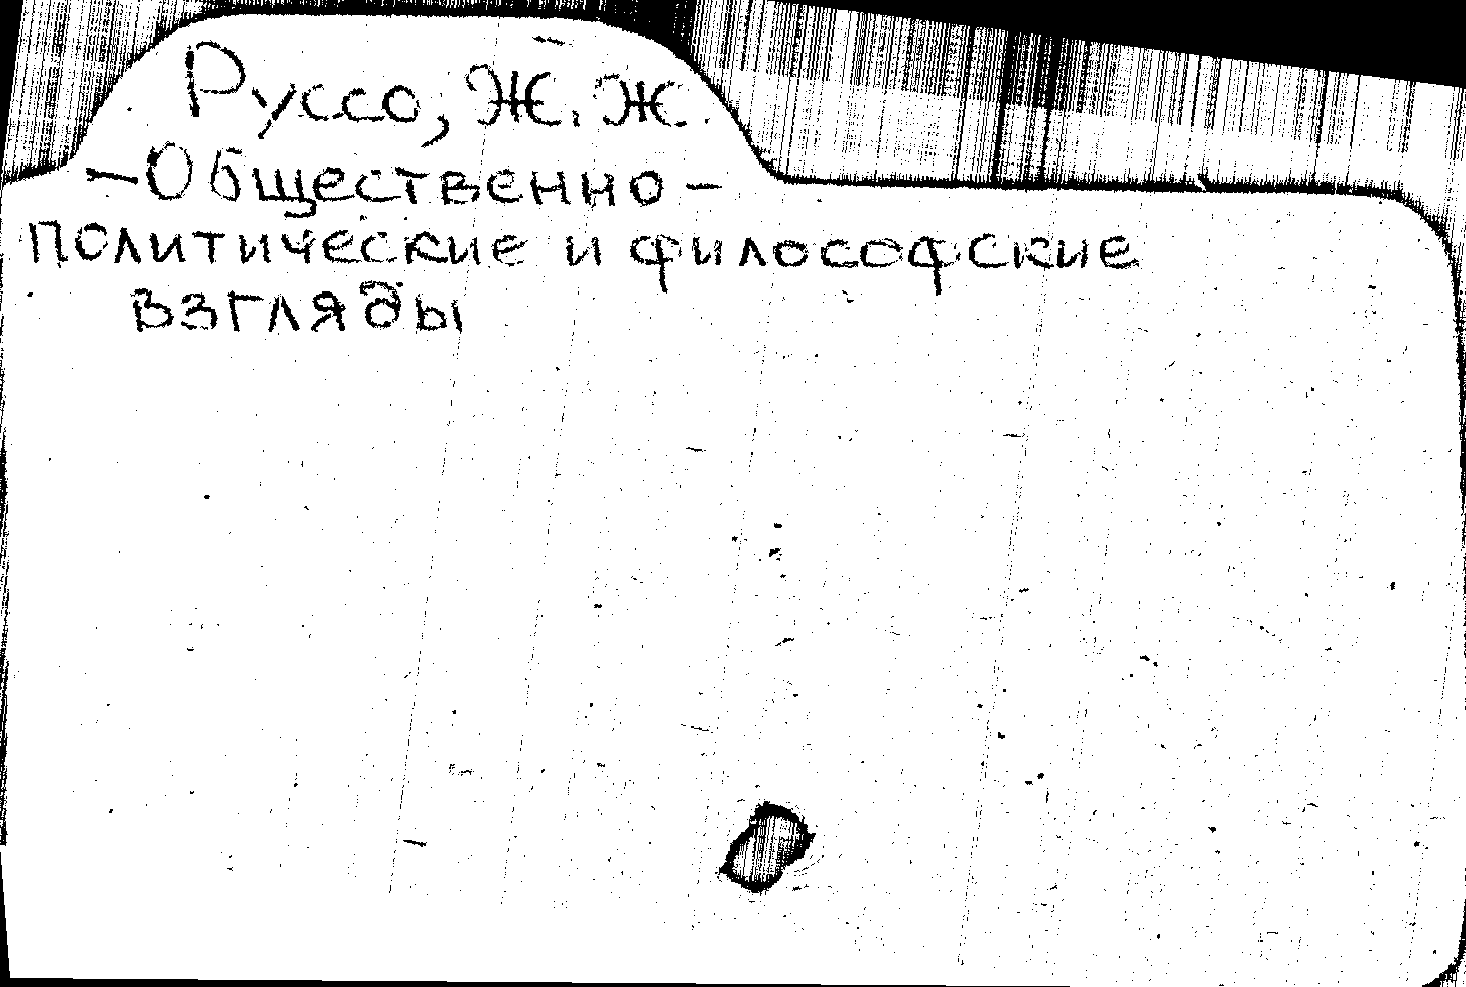 Руссо, Ж. Ж.
— Общественно-
политические и философские
взгляды